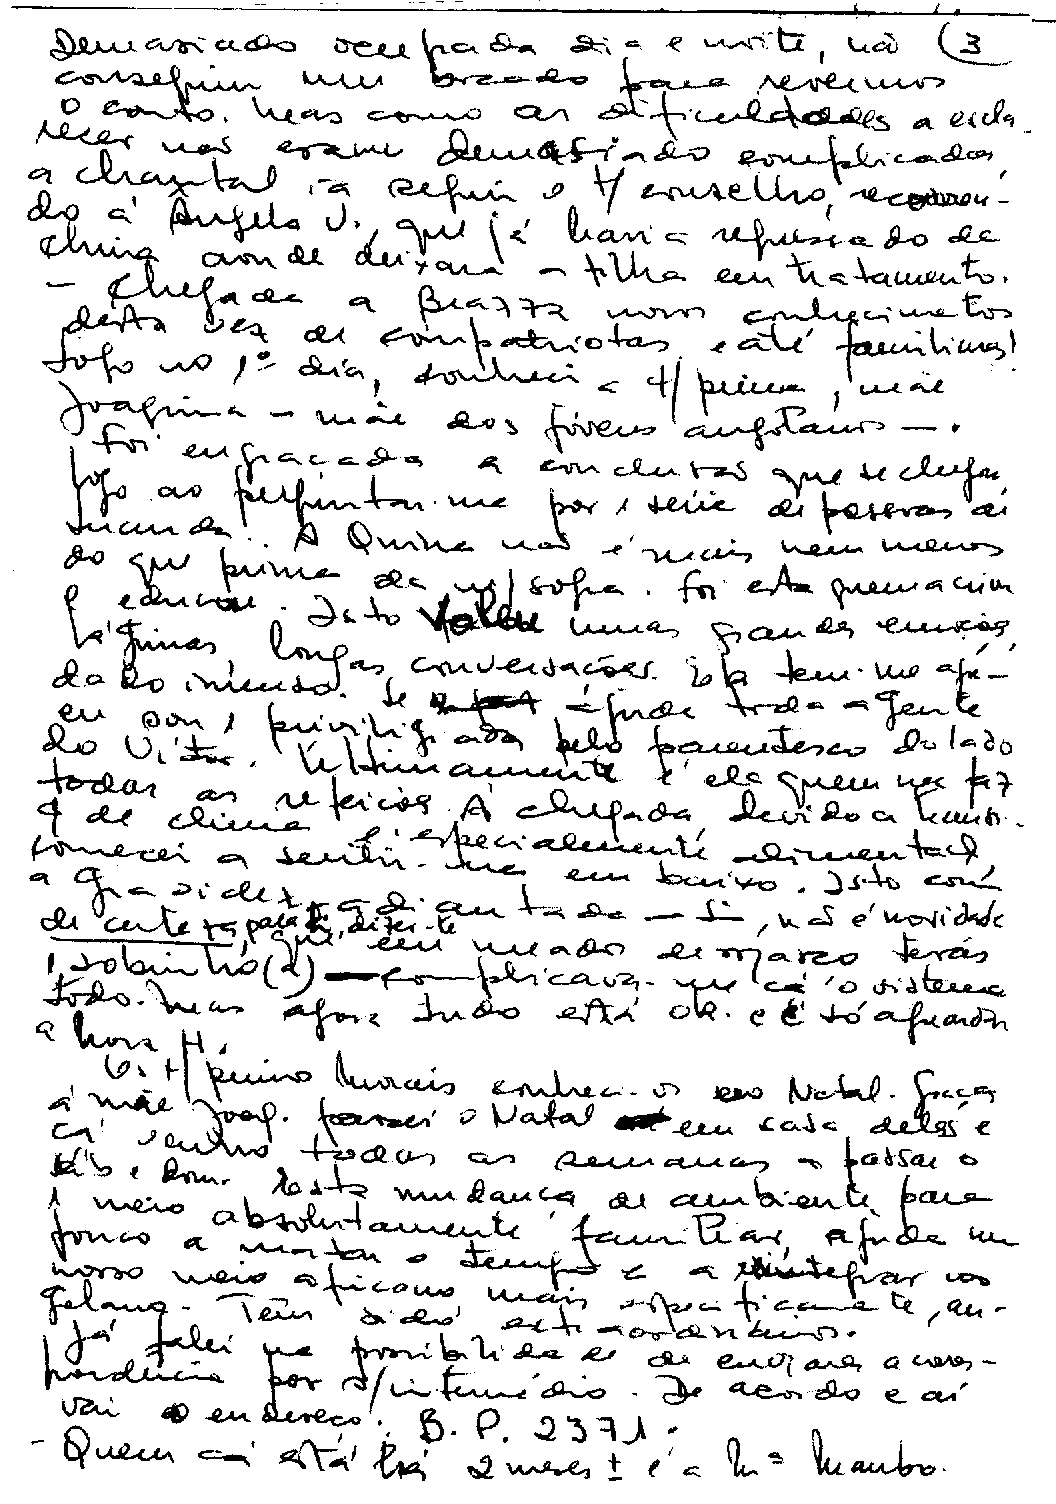 Demasiado ocupada dia e noite, não (3
conseguiu um bocado para revermos
o conto. Mas como as dificuldades a escla-
recer não eram demasiado complicadas,
a Chantal irá seguir o t/ conselho, recorren-
do à Ângela V., que já havia regressado da
China aonde deixara a filha em tratamento.
- Chegada a Brazza novos conhecimentos
desta vez de compatriotas e até familiares!
Logo no 1º dia, conheci a t/ prima, mãe
Joaquina - mãe dos jovens angolanos -.
Foi engraçada a conclusão que se chegou,
logo ao perguntar-me por 1 série de pessoas de
Luanda.. A Quina não é mais nem menos
do que prima da m/ sogra. Foi esta quem a criou
e educou. Isto valeu umas grandes emoções,
lágrimas, longas conversações. Ela tem-me aju-
dado imenso. Se ajuda toda a gente
eu sou 1 privilegiada pelo parentesco do lado
do Vítor. Ultimamente é ela quem me faz
todas as refeições. À chegada, devido a
de clima e especialmente alimentar,
comecei a sentir-me em baixo. Isto com
a gravidez adiantada - Sim, não é novidade
de certeza para ti, dizer-te que em meados de março terás
1 sobrinho(a) - complicava-me cá o sistema
todo. Mas agora tudo está OK. e é só aguardar
a hora H.
Os t/ primos Morais conheci-os no Natal. Graças
à mãe Joaq. passei o Natal em casa deles e
cá venho todas as semanas a passar o
sáb e dom. Esta mudança de ambiente, para
1 meio absolutamente familiar, ajuda um
pouco a matar o tempo e a reintegrar no
nosso meio africano mais especificamente, an-
golano. Têm sido extraordinários.
Já falei na possibilidade de enviares a corres-
pondência por s/ intermédio. De acordo e aí
vai o endereço: B.P. 2371.
- Quem cá está há 2 meses ± é a Mª Mambo.